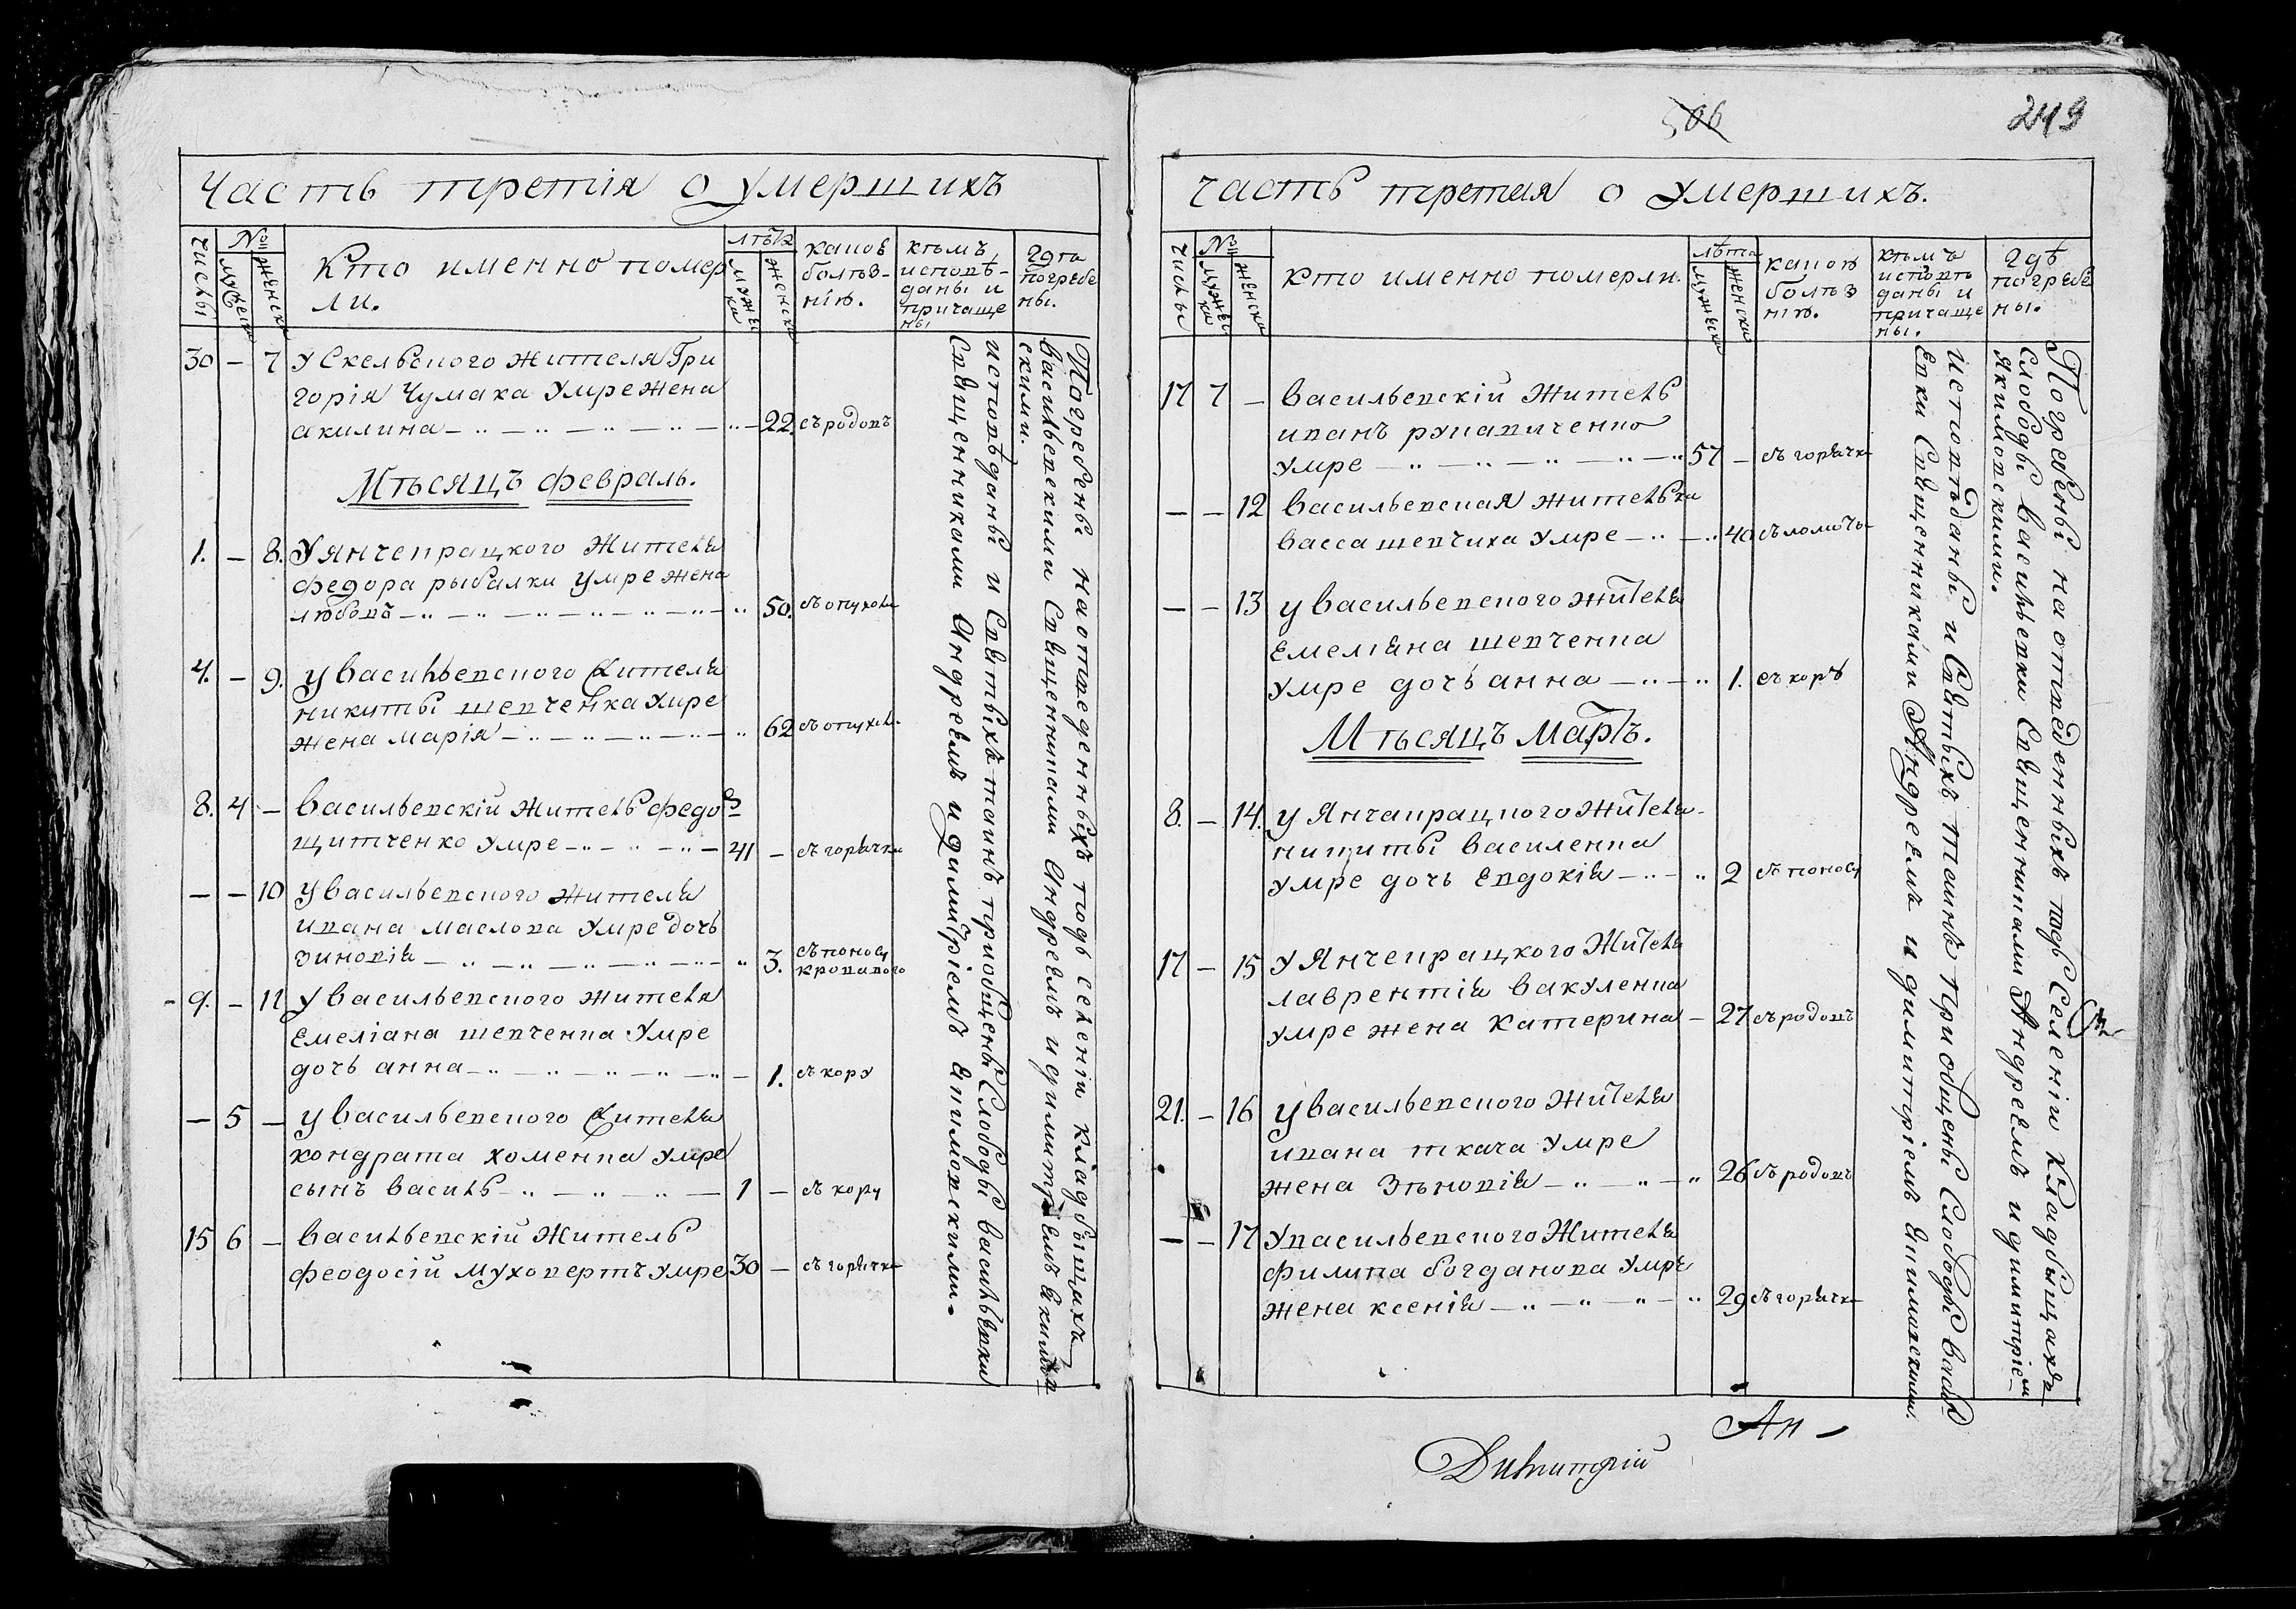 Часть третія о умершихъ
числы
№
мужеск
женски
Кто именно помер
ли.
лѣта
мужес
ки
женски
какою
болѣз-
нію.
кѣмъ
исповѣ-
даны и
причаще
ны
гдѣ
погребе
ны.
30 — 7 у Скельвского жителя Гри
горія Чумака умре жена
акилина — 22. съ родовъ
Мѣсяцъ февраль.
1. — 8. У янчепрацкого жителя
федора рыбалки умре жена
любовъ — 50. съ опухоли
4. — 9. у васильевского жителя
никиты шевченка умре
жена марія — 62 съ опухол.
8. 4 — васильевскій житель федо
щитченко умре — 41 — съ горячки
— — 10 у васильевского жителя
ивана маслова умре дочь
зиновія — 3. съ поносу
кровавого
9. — 11 у васильевского жителя
емеліана шевченка умре
дочь анна — 1. съ кору
— 5 — у васильевского жителя
кондрата хоменка умре
сынъ василь — 1 — съ кору
15 6 — васильевскій житель
феодосій муховертъ умре 30 — съ горячки
исповѣданы и святыхъ таинъ пріобщены слободы васильевки
священниками Андреемъ и димитріемъ якимовскими.
Погребены на отведенныхъ подъ селеніи кладбыщахъ
васильевскими священниками Андреемъ и димитріемъ якимов
скими.
506
249
часть третая о умершихъ.
числы
№
мужес
ки
женски
кто именно померли.
лѣта
мужески
женски
какою
болѣз
нію.
кѣмъ
исповѣ
даны и
причаще
ны.
гдѣ
погребе
ны.
17 7 — васильевскій житель
иванъ рукавиченко
умре — 57 — съ горячки
— — 12 васильевская жителька
васса шевчиха умре — 40 съ ломоты
— — 13 у васильевского жителя
емеліяна шевченка
умре дочь анна — 1. съ коръ
Мѣсяцъ мартъ.
8. — 14. у Янчапрацкого жителя
никиты василенка
умре дочь евдокія — 2 съ поносу
17 — 15 у Янчепрацкого жителя
лаврентія вакуленка
умре жена катерина — 27 съ родовъ
21. — 16 у васильевского жителя
ивана ткача умре
жена зѣновія — 26 съ родовъ
— — 17 у васильевского жителя
филипа богданова умре
жена ксенія — 29 съ горячки
исповѣданы и святыхъ таинъ пріобщены слободы василь
евки священниками Андреемъ и димитріемъ якимовскими.
Погребены на отведенныхъ подъ селеніи кладбыщахъ
слободы васильевки священниками Андреемъ и димитріем
якимовскими.
Ан —
Димитрій